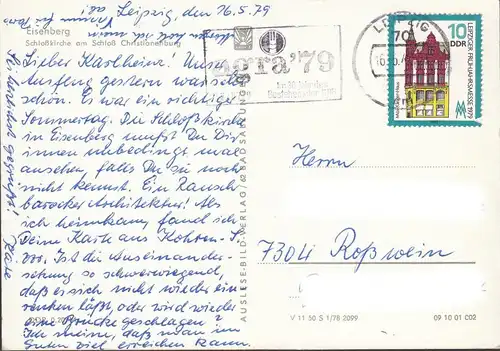 Leipzig, den 16.5.79
Eisenberg
Schloßkirche am Schloß Christiansburg
Lieber Karlheinz! Unser
Ausflug gestern war sehr
schön. Es war ein richtiger
Sommertag. Die Schloßkirche
in Eisenberg mußt Du Dir
innen unbedingt mal
ansehen, falls Du sie noch
nicht kennst. Ein Rausch
barocker Architektur! Als
ich heimkam, fand ich
Deine Karte aus Kohren-S.
vor. Ist die Auseinander-
setzung so schwerwiegend,
daß es sich nicht wieder ein-
renken läßt, oder wird wieder
eine Brücke geschlagen?
Ich meine, daß man im
Guten viel erreichen kann.
Sei herzlichst gegrüßt!
agra '79
LEIPZIG
70
10
DDR
LEIPZIGER FRÜHJAHRSMESSE 1979
MM
Herrn
7304 Roßwein
AUSLESE-BILD-VERLAG / 62 BAD SALZUNGEN
V 11 50 S 1/78 2099
09 10 01 C02